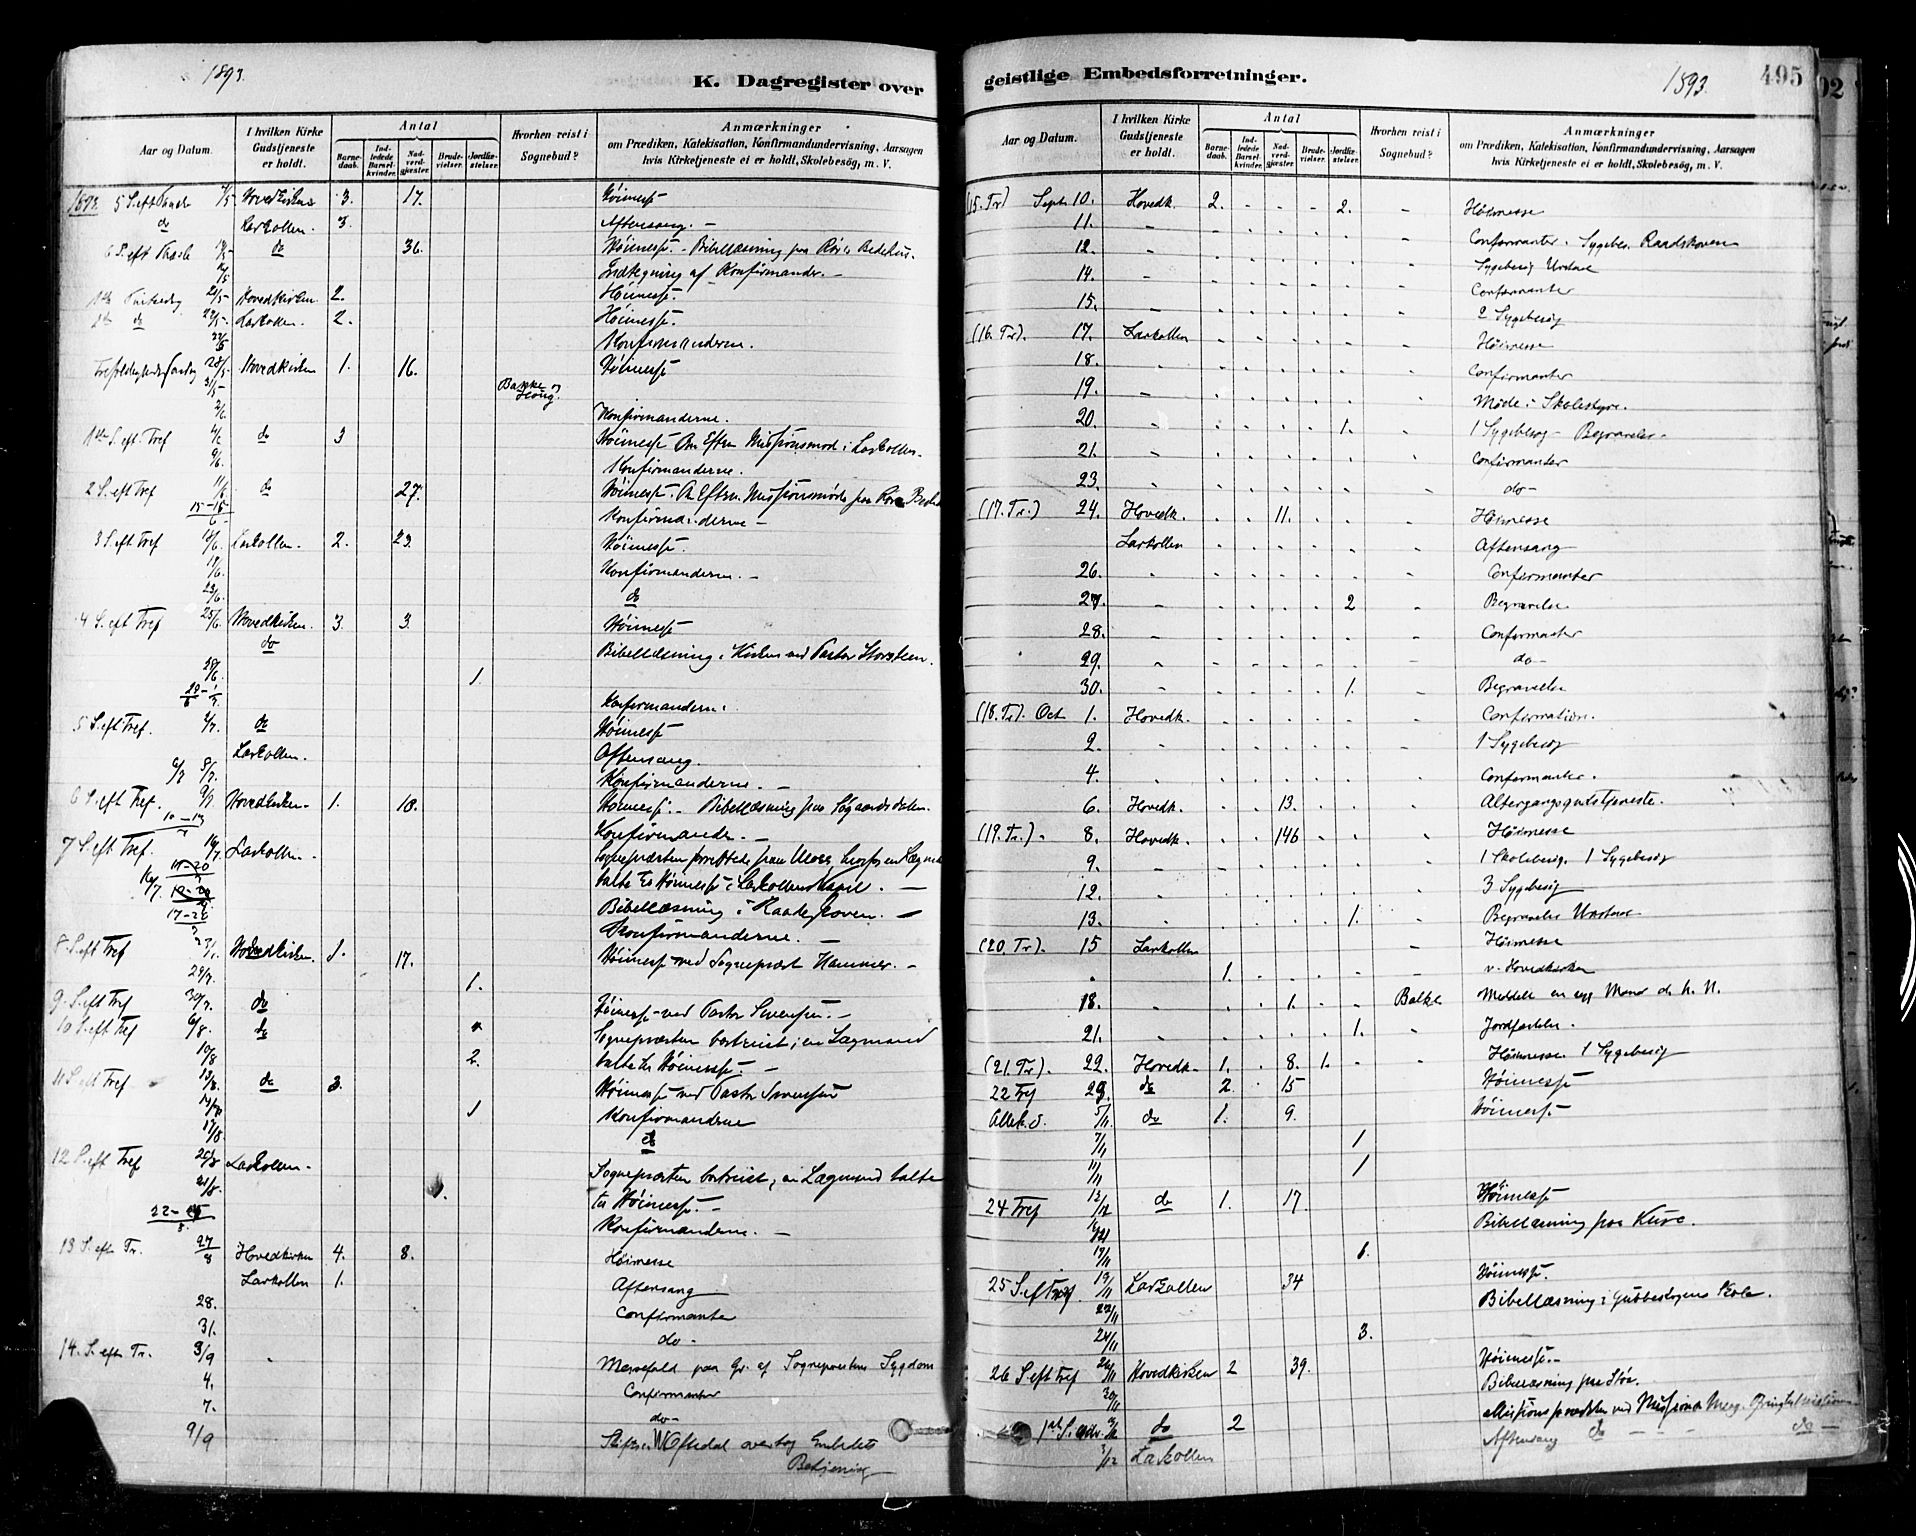 1893.
K. Dagregister over
Aar og Datum.
I hvilken Kirke Gudstjeneste er holdt.
Antal
Barnedaab.
Indledede Barselkvinder.
Nadverdgjæster.
Brudevielser.
Jordfæstelser.
Hvorhen reist i Sognebud?
Anmærkninger
om Prædiken, Katekisation, Konfirmandundervisning, Aarsagen
hvis Kirketjeneste ei er holdt, Skolebesög, m. V.
1893. 5 S. eft Paaske 7/5 Hovedkirken 3. 17. Höimesse
do Larkollen. 3. Aftensang. -
6 S. eft Paaske do 36. Höimesse. - Bibellæsning paa Bedehus.
Indtegning af Konfirmander. -
1ste Pintsedag 21/5 Hovedkirken 2. Höimesse.
2den do 22/5 Larkollen. 2. Höimesse.
Konfirmanderne.
28/5 Hovedkirken 1. 16. Höimesse
31/5 Bakke og Houg.
2/6. Konfirmanderne.
1ste S. eft. Tref 4/6 do 3 Höimesse Om Eftm Missionsmöde i Larkollen.
9/6. Konfirmanderne.
2 S. eft Tref 11/6 do 27. Höimesse. Om Eftm. Missionsmöde paa
15-16/6 Konfirmanderne -
3 S. eft Tref 18/6 Larkollen. 2. 23. Höimesse.
Konfirmanderne. -
23/6. do
4 S. eft Tref 25/6 Hovedkirken. 3. 3. Höimesse
do Bibellæsning i Kirken ved Pastor
28/6. 1.
Konfirmanderne.
5 S. eft Tref. 2/7. do Höimesse
Larkollen. Aftensang.
6/7 8/7. Konfirmanderne. -
6 S. eft Tref. 9/7. Hovedkirken. 1. 10. Höimesse. - Bibellæsning paa
Konfirmander. -
7 S. eft Tref. 16/7 Larkollen. Sognepræsten forrettede paa Moss en Lægmand
talte til Höimesse i Larkollens Kapel. -
Bibellæsning i Raadeskoven. -
Konfirmanderne. -
8. S. eft Tref 23/7. Hovedkirken. 1. 17. Höimesse ved Sognepræst Hammer. -
29/7. 1.
9. S. eft Tref 30/7. do Höimesse ved Pastor Svensen. -
10 S. eft Tref 6/8. do Sognepræsten bortreist; en Lægmand
10/8 2. talte til Höimesse. -
11 S. eft Tref 13/8. do 3. Höimesse ved Pastor Svensen
1 Konfirmanderne
17/8. do
12 S. eft Tref 20/8 Larkollen. Sognepræsten bortreist, en Lægmand talte
til Höimesse. -
Konfirmanderne. -
13 S. eft Tr. 27/8 Hovedkirken 4. 8. Höimesse
Larkollen 1. Aftensang
28. Confirmanter
31. do-
14. S. eft Tr. 3/9 Messefald paa Gr. af Sognepræstens Sygdom
4. Confirmanter
7. do-
9/9 overtog Embedets
Betjening
geistlige Embedsforretninger.
1893.
495
Aar og Datum.
I hvilken Kirke Gudstjeneste er holdt.
Antal
Barnedaab.
Indledede Barselkvinder.
Nadverdgjæster.
Brudevielser.
Jordfæstelser.
Hvorhen reist i Sognebud?
Anmærkninger
om Prædiken, Katekisation, Konfirmandundervisning, Aarsagen
hvis Kirketjeneste ei er holdt, Skolebesög, m. V.
(15. Tr) Sept. 10. Hovedk. 2. 2. Höimesse
11. Confirmanter. Sygebes. Raadskoven
12. Sygebesög
14. Confirmanter
15. 2 Sygebesög
(16. Tr). 17. Larkollen Höimesse
18. Confirmanter
19. Møde i Skolestyre.
20. 1. 1 Sygebesög - Begravelse.
21. Confirmanter
23. do-
(17. Tr.) 24. Hovedk. 11. Höimesse
Larkollen Aftensang
26. Confirmanter
27. 2 Begravelse
28. Confirmanter
29. do-
30. 1. Begravelse
(18. Tr). Oct 1. Hovedk. Confirmation.
2. 1 Sygebesög
4. Confirmanter.
6. Hovedk. 13. Altergangsgudstjeneste.
(19. Tr.). 8. Hovedk. 146 Höimesse
9. 1 Skolebesög. 1 Sygebesög
12. 3 Sygebesög
13. 1. Begravelse
(20. Tr). 15 Larkollen Höimesse
1. v. Hovedkirken
18. 1. Bakke Meddelt en syg Mand d. h. N.
21. 1. Jordfæstelse.
(21. Tr). 22. Hovedk. 1. 8. 1. Höimesse. 1 Sygebesög
22 Tref 29. do 2. 15 Höimesse
Alleh. d. 5/11 do 1. 9. Höimesse
7/11 1
11/11 1
24 Tref do 1. 17. Höimesse
Bibellæsning paa Kure.
17/11 1.
25 S. eft Tref 19/11 Larkollen 34 Höimesse.
22/11 Bibellæsning i Skole.
24/11 3.
26 S. eft Tref 26/11 Hovedkirken 2 39. Höimesse. -
30/11 Bibellæsning paa
1ste S. Adv. 3/12 do 2 Missionsprædiken ved
3/12 Larkollen Aftensang do - - - do -